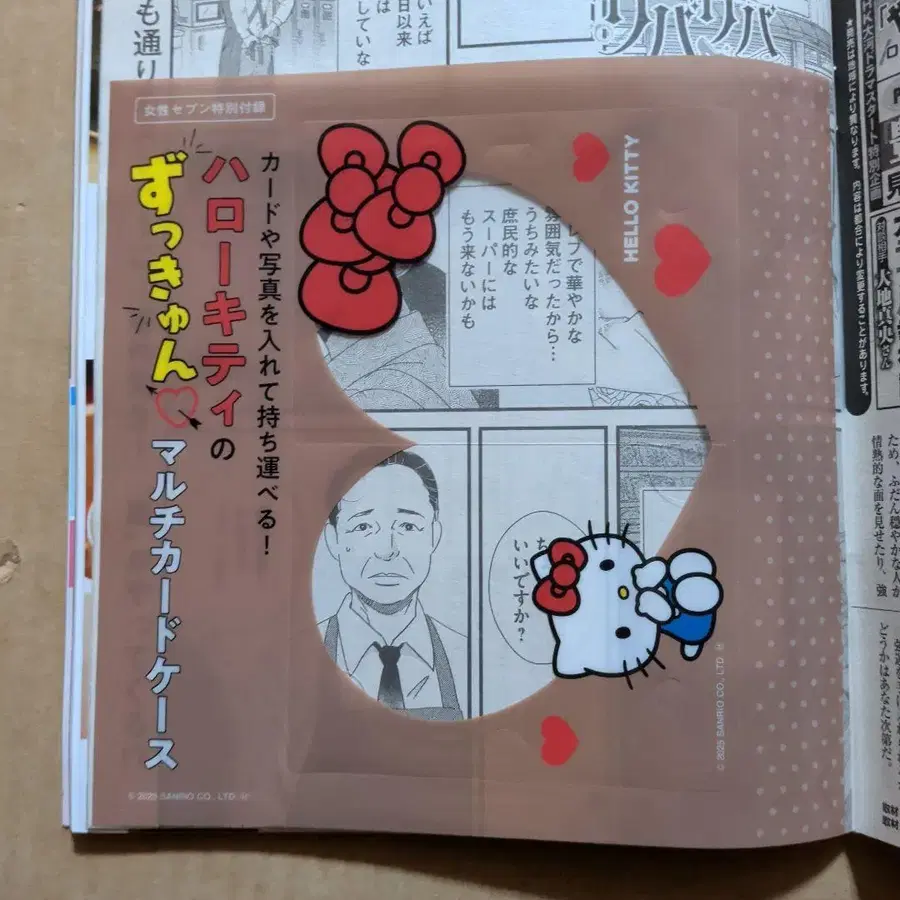 女性セブン特別付録
カードや写真を入れて持ち運べる！
ハローキティの
ずっきゅん
マルチカードケース
© 2025 SANRIO CO., LTD.
HELLO KITTY
© 2025 SANRIO CO., LTD.
で華やかな
雰囲気だったから…
うちみたいな
庶民的な
スーパーには
もう来ないかも
いいですか？
いえば
日以来
していな
も通り
大河ドラマスタート特別企画
★発売は地域により異なります。 内容は都合により変更することがあります。
対談相手
大地真央さん
ため、ふだん穏やかな人が
情熱的な面を見せたり、強
どうかはあなた次第だ。
取材
取材